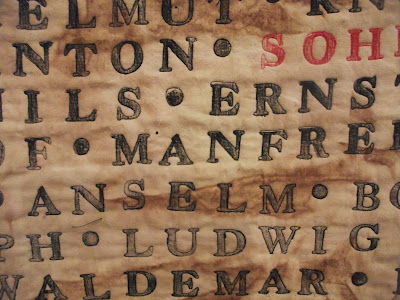 ELMUT •
NTON • SOH
ILS • ERNST
OF • MANFRE
• ANSELM • BO
PH • LUDWIG •
WALDEMAR •